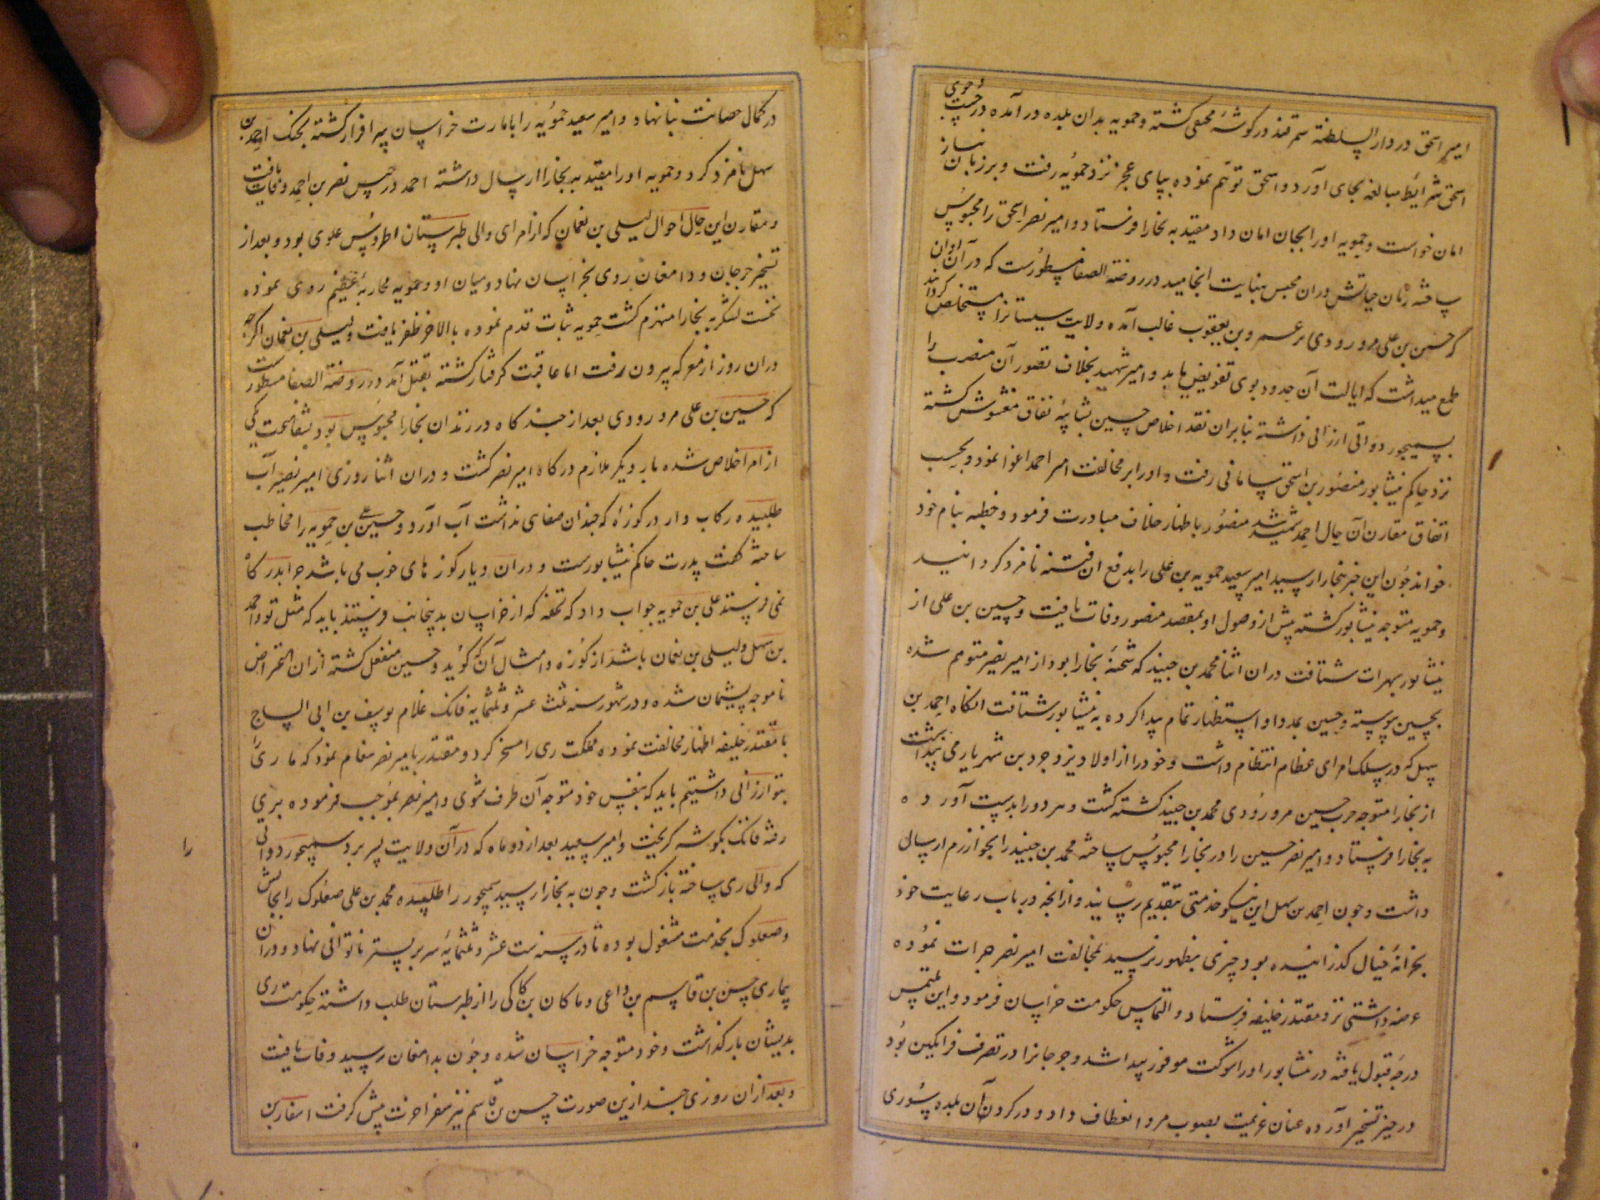 امیر اسحق در دار السلطنه سمرقند در کوشهٔ مخفی کشته و حمویه بدان بلده در آمده در جست و جوی
اسحق شرایط مبالغه بجای آورد و اسحق توهم نموده بپای عجز نزد حمویه رفت و بر زبان نیاز
امان خواست و حمویه او را بجان امان داد مقید به بخارا فرستاد و امیر نصر اسحق را محبوس
ساخته زمان حیاتش در ان محبس بنهایت انجامید در روضة الصفا مسطورست که در آن اوان
که حسین بن علی مرورودی بر عمرو بن یعقوب غالب آمده ولایت سیستانرا مستخلص کردانید
طمع میداشت که ایالت آن حدود بوی تفویض یابد و امیر شهید بخلاف تصور آن منصب را
بسیمجور دواتی ارزانی داشته بنابران نقد اخلاص حسین بشایبهٔ نفاق مغشوش کشته
نزد حاکم نیشابور منصور بن اسحق سامانی رفت و او را بر مخالفت امیر احمد اغوا نمود و بحسب
اتفاق مقارن آن حال احمد شهید شد منصور باظهار خلاف مبادرت فرمود و خطبه بنام خود
خواند چون این خبر ببخارا رسید امیر سعید حمویه بن علی را بدفع ان فتنه نامزد کردانید
و حمویه متوجه نیشابور کشته پیش از وصول او بمقصد منصور وفات یافت و حسین بن علی از
نیشابور بهرات شتافت در ان اثنا محمد بن جنید که شحنهٔ بخارا بود از امیر نصر متوهم شده
بحسین پیوسته و حسین بمدد او استظهار تمام پیدا کرده به نیشابور شتافت انکاه احمد بن
سهل که در سلک امرای عظام انتظام داشت و خود را از اولاد یزدجرد بن شهریار می پنداشت
از بخارا متوجه حرب حسین مرورودی محمد بن جنید کشته کشت و هر دو را بدست آورده
به بخارا فرستاد و امیر نصر حسین را در بخارا محبوس ساخته محمد بن جنید را بخوارزم ارسال
داشت و چون احمد بن سهل این نیکو خدمتی بتقدیم رسانید و از انچه در باب رعایت خود
بخزانهٔ خیال کذرانیده بود چیزی بظهور نرسید بمخالفت امیر نصر جرات نموده
عرضه داشتی نزد مقتدر خلیفه فرستاد و التماس حکومت خراسان فرمود و این ملتمس
درجهٔ قبول یافته در نیشابور او را شوکت موفور پیدا شد و جرجانرا در تصرف قراتکین بود
در حیز تسخیر آورده عنان عزیمت بصوب مرو انعطاف داد و در کردن آن بلده سوری
در کمال حصانت بنا نهاد و امیر سعید حمویه را بامارت خراسان سرافراز کشته بجنک احمد بن
سهل نامزد کرد و حمویه او را مقید به بخارا ارسال داشته احمد در حبس نصر بن احمد وفات یافت
و مقارن این حال احوال لیلی بن نعمان که از امرای والی طبرستان اطروش علوی بود و بعد از
تسخیر جرجان و دامغان روی بخراسان نهاد و میان او و حمویه محاربهٔ عظیم روی نموده
نخست لشکر بخارا منهزم کشت حمویه ثبات قدم نموده بالاخر ظفر یافت و لیلی بن نعمان اکرچه
در ان روز از معرکه بیرون رفت اما عاقبت کرفتار کشته بقتل آمد در روضة الصفا مسطورست
که حسین بن علی مرورودی بعد از چند کاه در زندان بخارا محبوس بود بشفاعت یکی
از امرا خلاص شده بار دیکر ملازم درکاه امیر نصر کشت و در ان اثنا روزی امیر نصر آب
طلبیده رکاب دار در کوزهٔ که چندان صفای نداشت آب آورد و حسین علی بن حمویه را مخاطب
ساخته کفت پدرت حاکم نیشابورست و در ان دیار کوزهای خوب می باشد چرا بدرکاه
نمی فرستد علی بن حمویه جواب داد که تحفه که از خراسان بدینجانب فرستند باید که مثل تو و احمد
بن سهل و لیلی بن نعمان باشد از کوزه و امثال آن که کوید و حسین منفعل کشته از ان اعتراض
ناموجه پشیمان شده و در شهور سنه ثلث عشر و ثلثمایه فاتک غلام یوسف بن ابی الساج
با مقتدر خلیفه اظهار مخالفت نموده مملکت ری را مسخر کرد و مقتدر بامیر نصر پیغام نمود که ما ری
بتو ارزانی داشتیم باید که بنفس خود متوجه آن طرف شوی و امیر نصر بموجب فرموده بری
رفته فاتک بکوشه کریخت و امیر سعید بعد از دو ماه که در آن ولایت بسر برد سیمجور دواتی
را
که والی ری ساخته باز کشت و چون به بخارا رسید سیمجور را طلبیده محمد بن علی صعلوک را بجایش
و صعلوک بخدمت مشغول بوده تا در سنه ست عشر و ثلثمایه سر بر بستر ناتوانی نهاد و در ان
بیماری حسن بن قاسم بن داعی و ماکان بن کاکی را از طبرستان طلب داشته حکومت ری
بدیشان باز کذاشت و خود متوجه خراسان شده و چون بدامغان رسید وفات یافت
و بعد از ان روزی چند از ین صورت حسن بن قاسم نیز سفر اخرت پیش کرفت اسفار بن